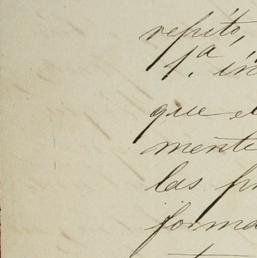 repito,
1.ª in
que e
mente
las pr
forma